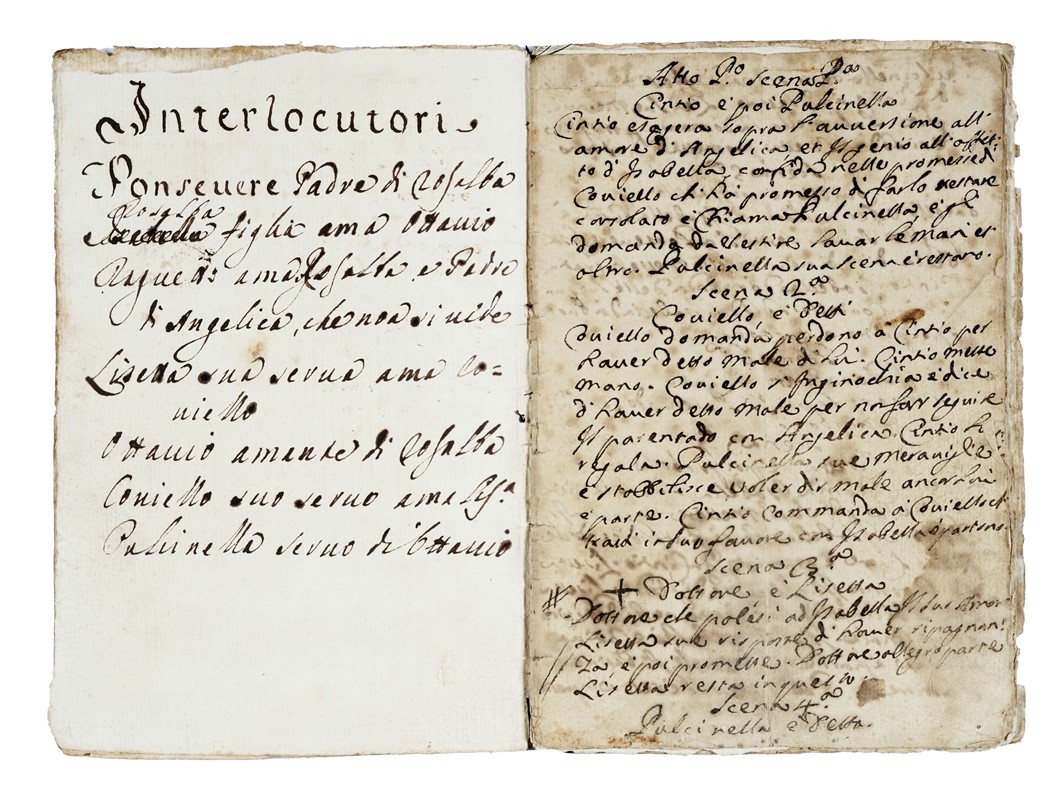 Interlocutori
Ponseuere Padre di Rosalba
Rosalba
figlia ama Ottauio
ama Rosalba e Padre
di Angelica, che non si uide
Lisetta sua serua ama Co=
uiello
Ottauio amante di Rosalba
Couiello suo seruo ama Lis.ª
Pulcinella seruo di Ottauio
Atto P.º Scena P.ª
Cintio e poi Pulcinella
Cintio esagera sopra l'auuersione all'
amore d'Angelica et Il genio all'affet-
to d'Isabella, confida nelle promesse di
Couiello ch'ha promesso di farlo restare
consolato e chiama Pulcinella, e gli
domanda dauestire lauar le mani et
altro. Pulcinella sua scena e restano.
Scena 2.ª
Couiello e Detti
Couiello domanda perdono a Cintio per
hauer detto male di lui. Cintio mette
mano. Couiello s'Inginochia e dice
d'hauer detto male per non far seguire
Il parentado con Angelica. Cintio li
regala. Pulcinella sue merauiglie
e stabbilisce voler dir male ancor lui
e parte. Cintio Commanda a Couiello ch
in suo fauore con Isabella e partono.
Scena 3.ª
Dottore e Lisetta
Dottore che palesi ad Isabella Il suo Amore
Lisetta sue risposte d'hauer ripugnan-
za e poi promette. Dottore allegro parte
Lisetta resta in quel
Scena 4.ª
Pulcinella e Detta.